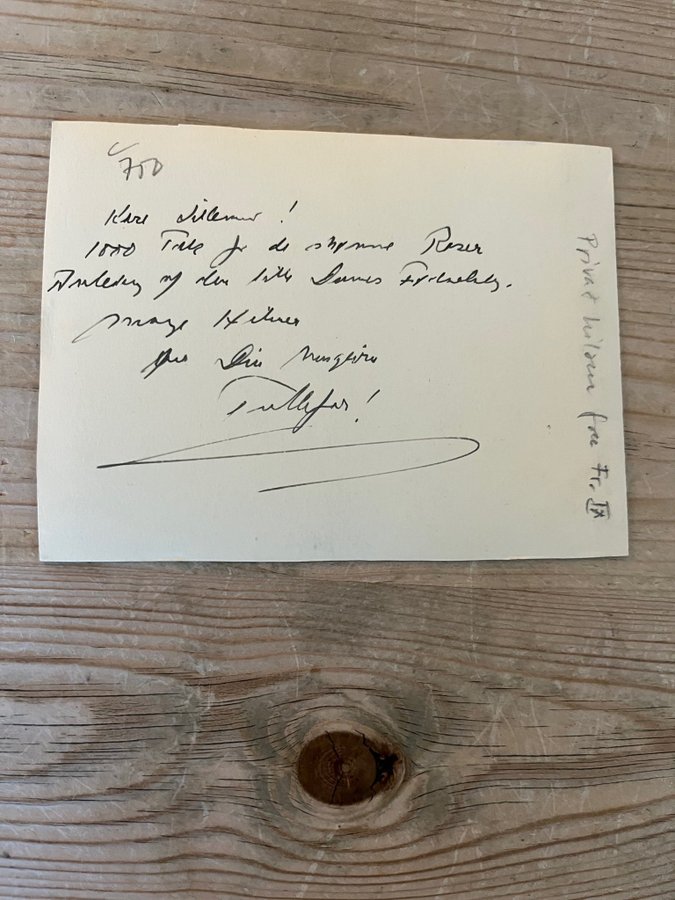 700
Kære Lillemor!
1000 Tak for de skønne Roser
Anledning af den lille Dames Fødselsdag.
mange Hilsner
fra Din
Tullefar!
Privat hilsen fra Fr. IX